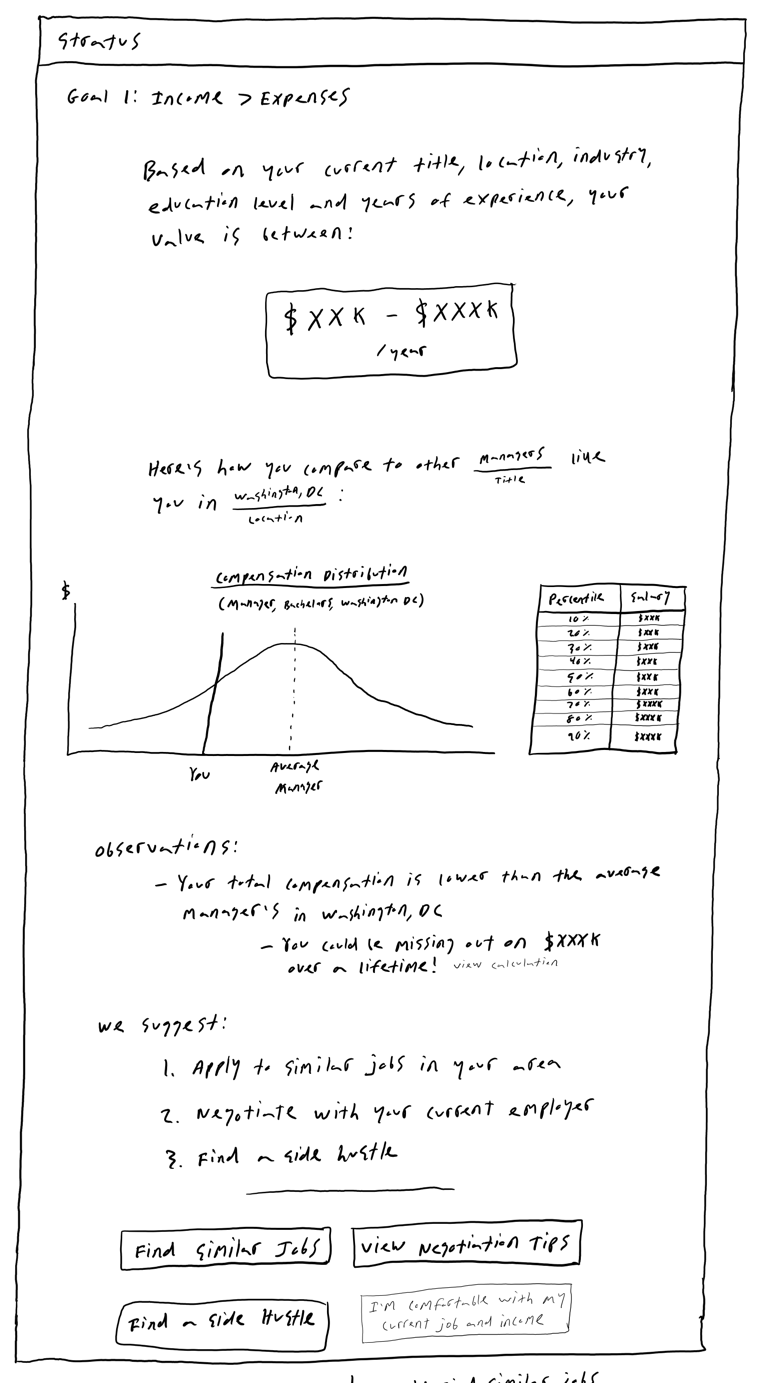 Stratus
Goal 1: Income > Expenses
Based on your current title, location, industry,
education level and years of experience, your
value is between:
$XXK - $XXXK
/year
Here's how you compare to other Managers like
Title
you in Washington, DC :
Location
Compensation Distribution
(Manager, Bachelors, Washington DC)
$
You
Average
Manager
Percentile Salary
10% $XXK
20% $XXK
30% $XXK
40% $XXK
50% $XXK
60% $XXK
70% $XXXK
80% $XXXK
90% $XXXK
Observations:
- Your total compensation is lower than the average
Manager's in Washington, DC
- You could be missing out on $XXXK
over a lifetime! view calculation
We suggest:
1. Apply to similar jobs in your area
2. Negotiate with your current employer
3. Find a side hustle
Find Similar Jobs
View Negotiation Tips
Find a Side Hustle
I'm comfortable with my
current job and income
similar jobs